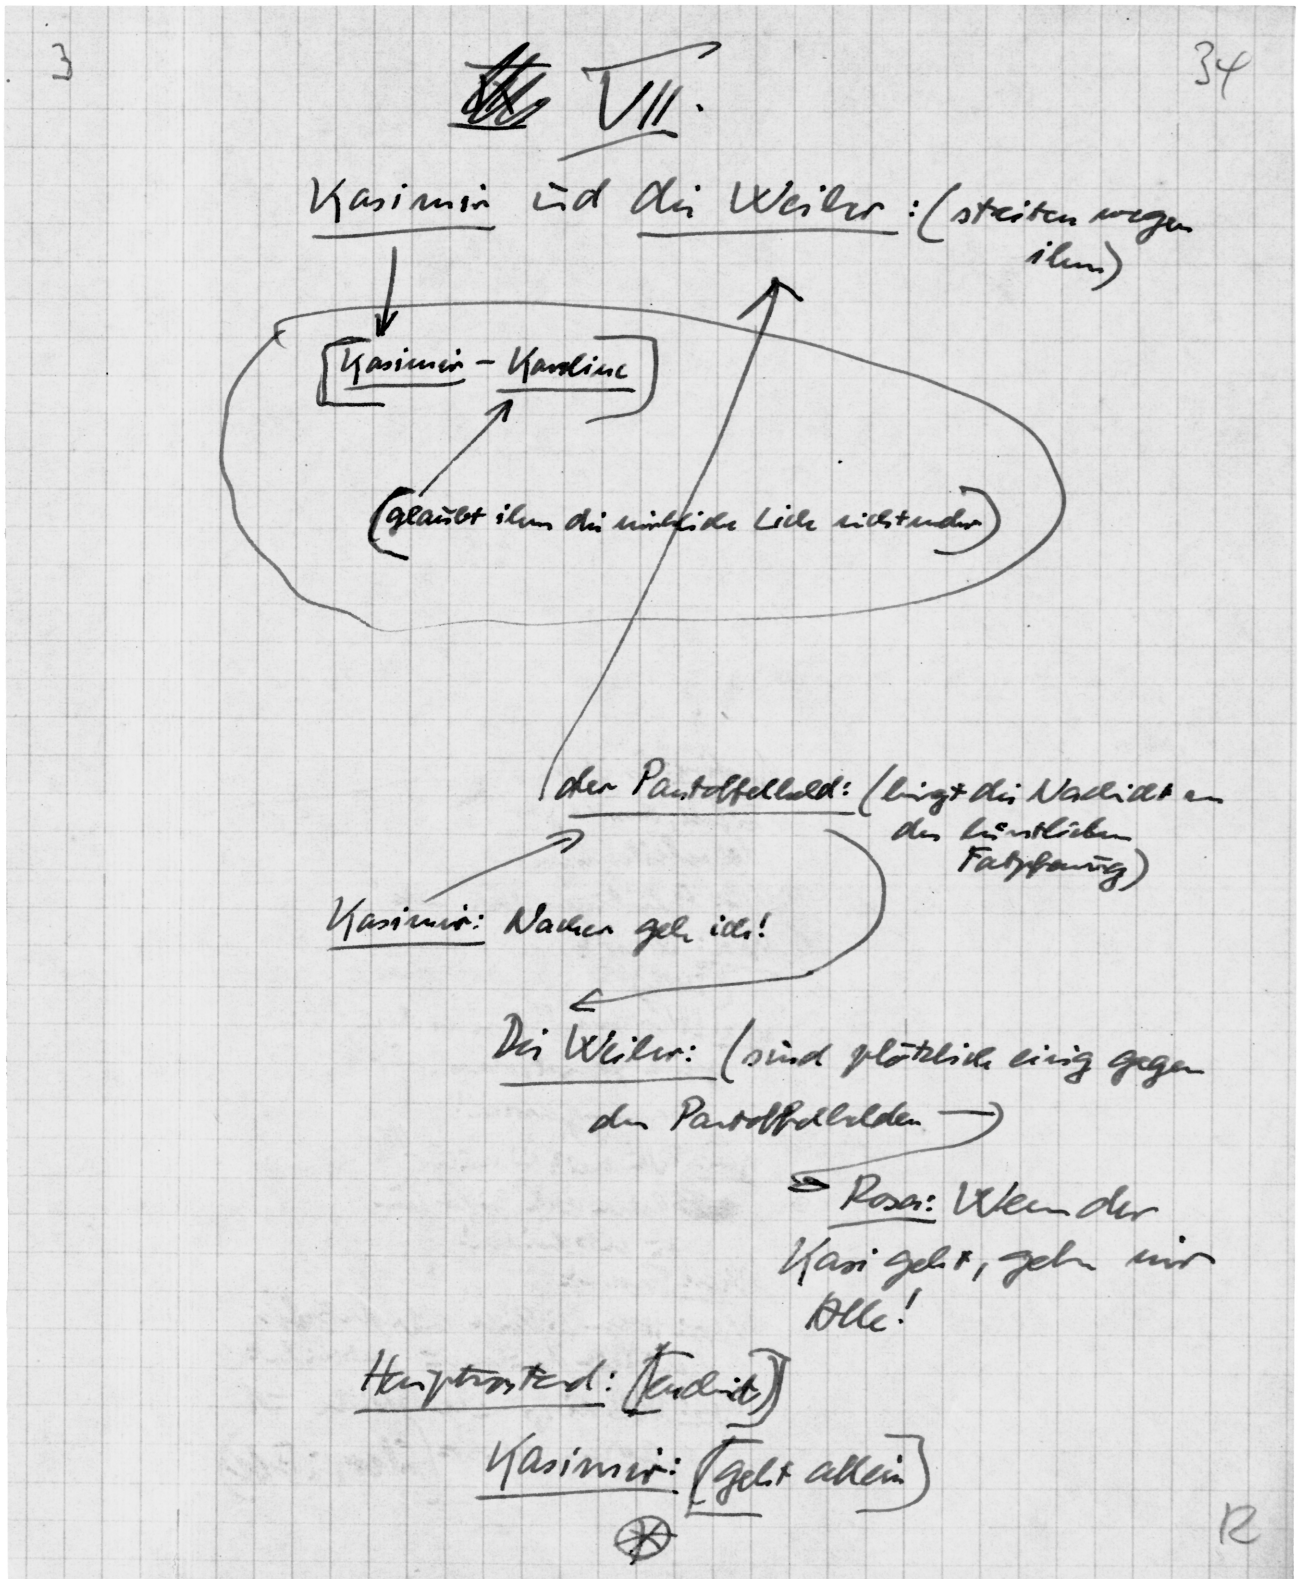 3
34
VII.
Kasimir und die Weiber: (streiten wegen
ihm)
[Kasimir – Karoline]
(glaubt ihm die wirkliche Liebe nicht mehr)
der Pantoffelheld: (bringt die Nachricht
den künstlichen
Kasimir: Nacher geh ich!
Die Weiber: (sind plötzlich einig gegen
den Pantoffelhelden
Rosa: Wenn der
Kasi geht, gehn wir
Alle!
[geht allein]
Kasimir:
12